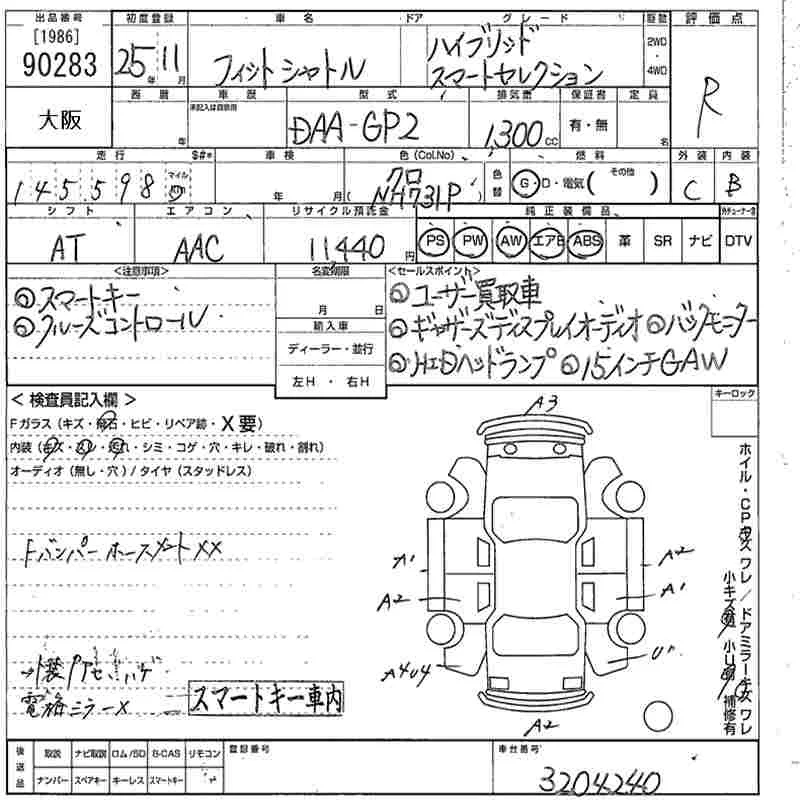 出品番号 初度登録 車名 ドア グレード 駆動 評価点
[1986]
90283
25年 11月 フィットシャトル ハイブリッド
スマートセレクション 2WD・4WD R
大阪
西暦 車歴 型式 排気量 保証書 定員
未記入は自家用
年 DAA-GP2 1,300cc 有・無 名
走行 $#* 車検 色(Col.No) 燃料 外装 内装
145598 マイル km 年 月 クロ
NH731P 色替 G・D・電気( その他 ) C B
シフト エアコン リサイクル預託金 純正装備品
AT AAC 11,440円 PS PW AW エアB ABS 革 SR ナビ DTV
<注意事項> 名変期限 <セールスポイント>
◎スマートキー
◎クルーズコントロール
月 日
輸入車
ディーラー・並行
左H・右H
◎ユーザー買取車
◎ギャザーズディスプレイオーディオ ◎バックモニター
◎HIDヘッドランプ ◎15インチGAW
<検査員記入欄> キーロック
Fガラス(キズ・飛石・ヒビ・リペア跡・X要)
内装(キズ・スレ・汚れ・シミ・コゲ・穴・キレ・破れ・割れ)
オーディオ(無し・穴)/タイヤ(スタッドレス)
Fバンパーホースメント××
電格ミラー×
スマートキー車内
A3
A1
A2
A2
A1
A4U4
U
A2
ホイル・CPキズ ワレ/ドアミラーキズ ワレ
小キズ有 小U有 補修有
後送品 取説 ナビ取説 ロム/SD B-CAS リモコン
ナンバー スペアキー キーレス スマートキー
登録番号 車台番号
3204240